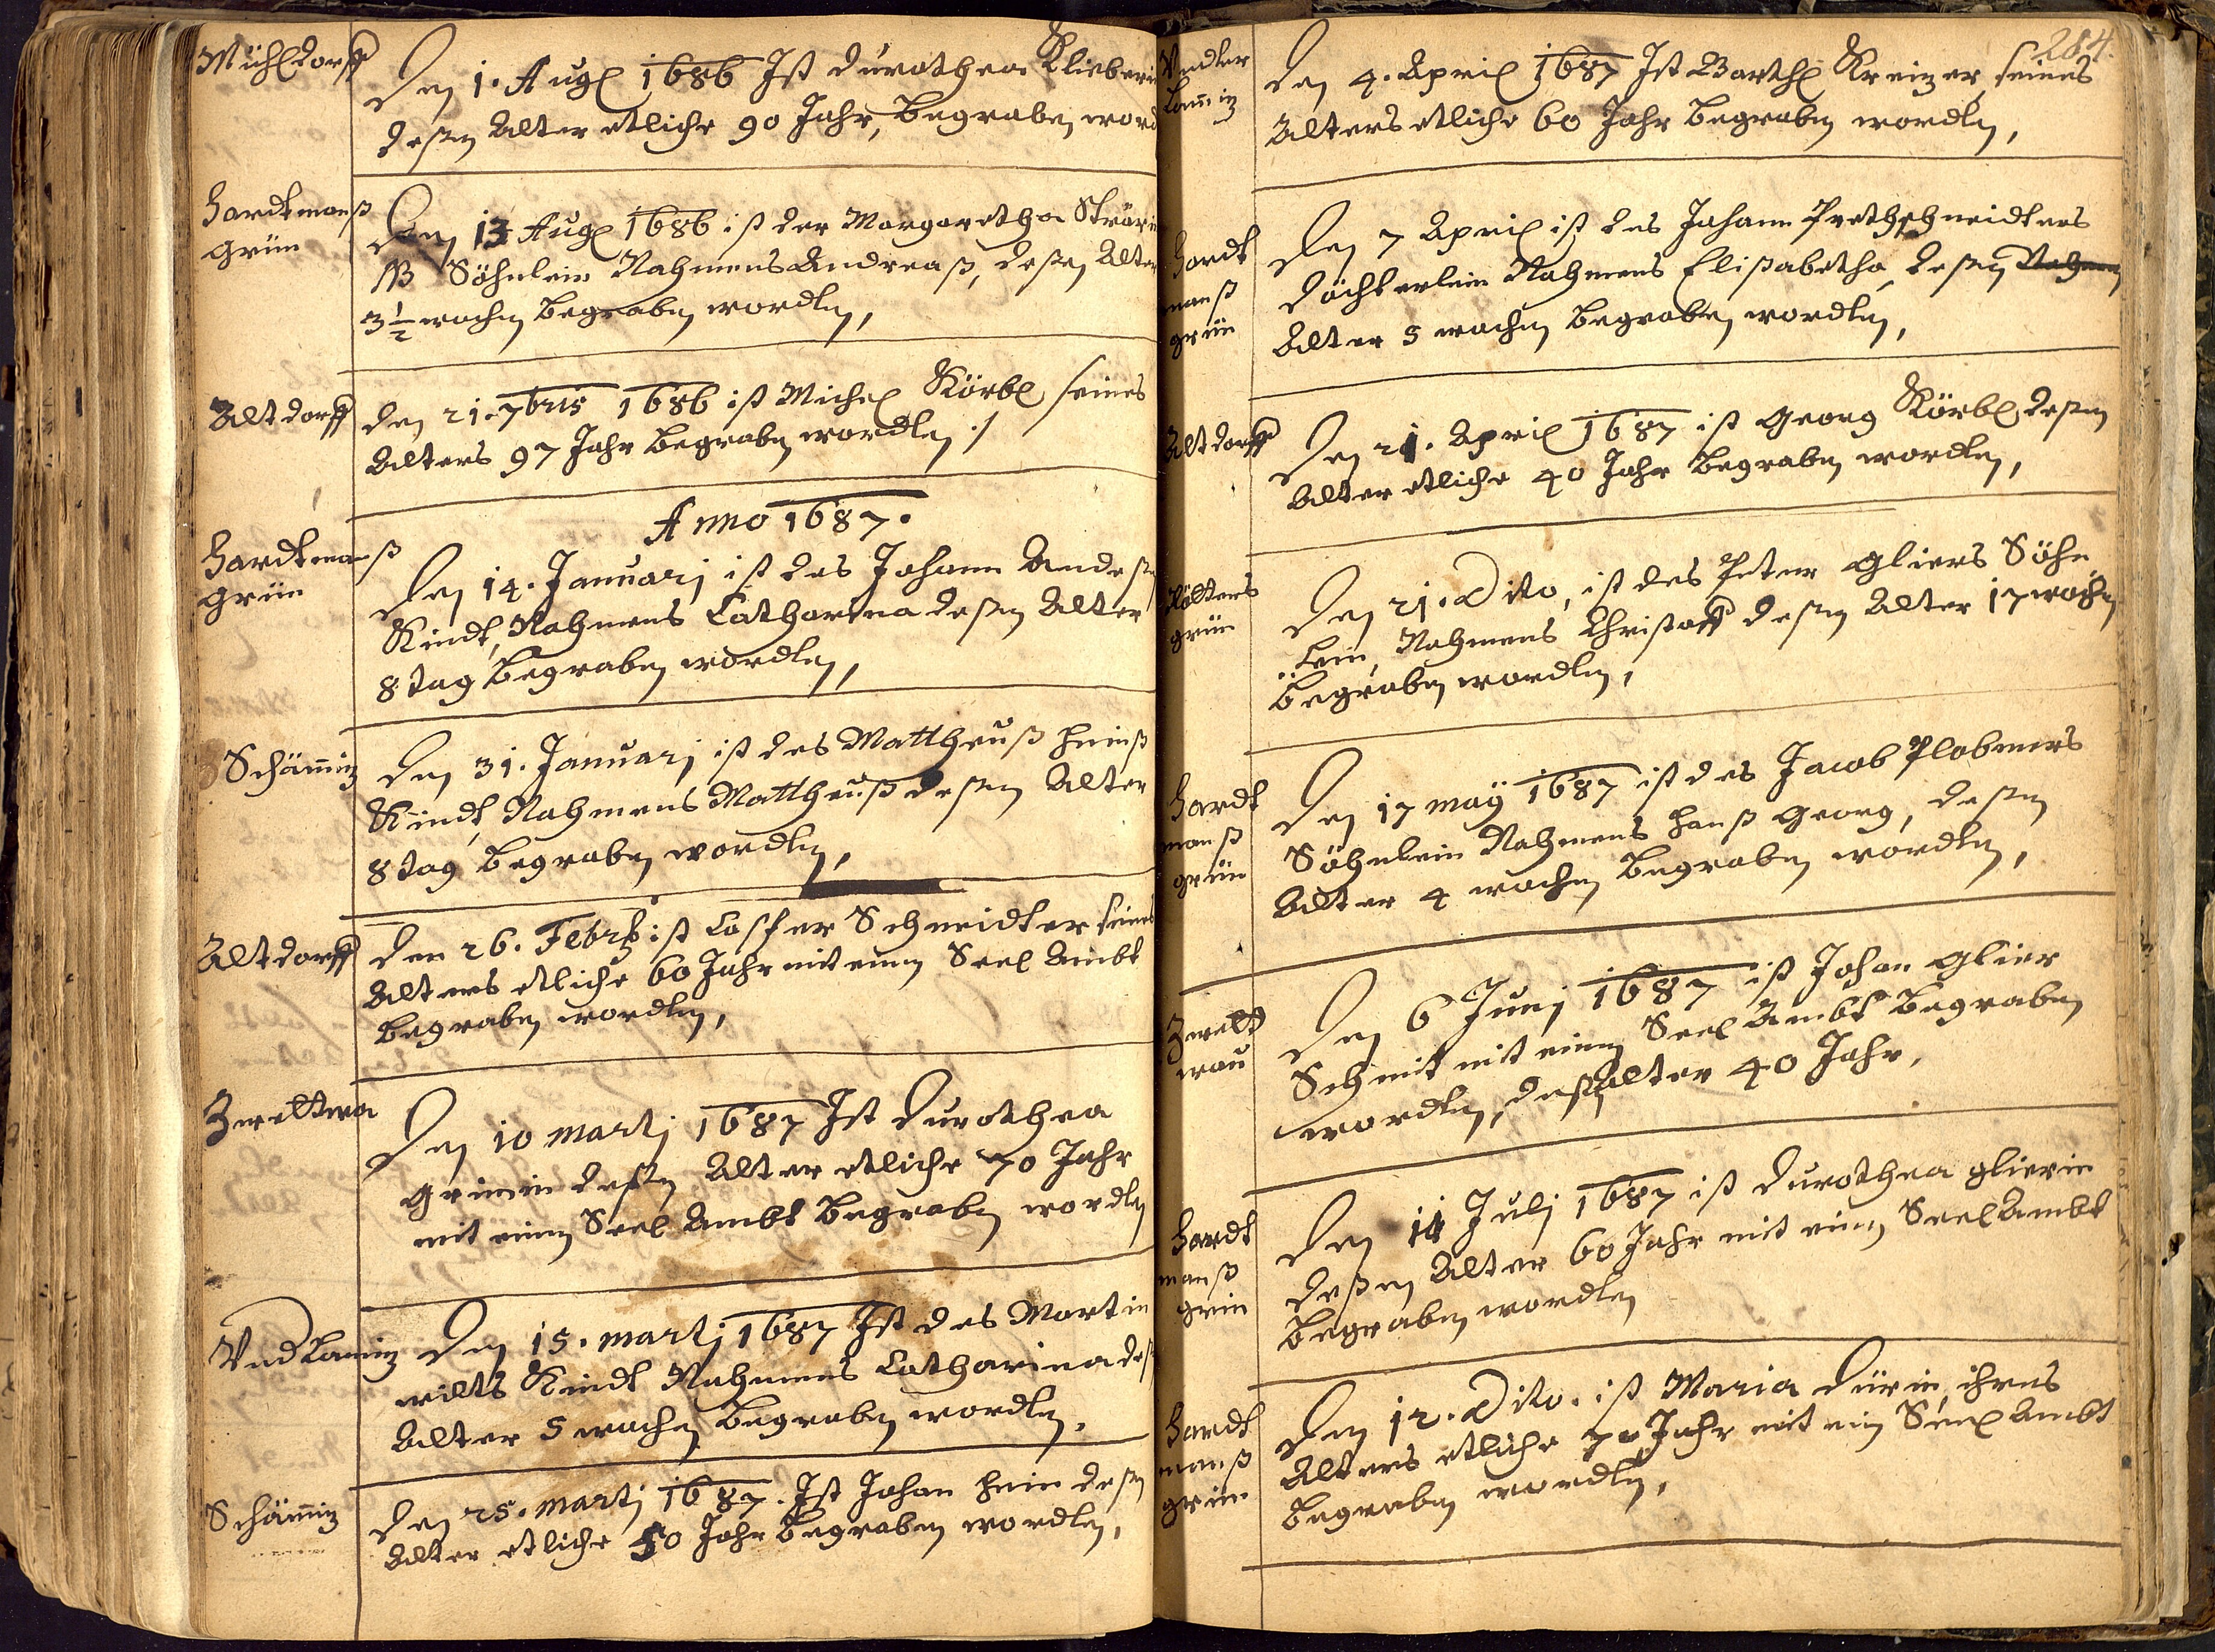 Mühldorff
Den 1. Augl 1686 Ist Durothea Klieberin
deßen Alter etliche 90 Jahr, Begraben word
Hardtmanß
grün
Den 13 Augl 1686 ist der Margaretha
NB Söhnlein Nahmens Andreaß, deßen Alter
3 1/2 wochen Begraben wordten,
Altdorff
Den 21. 7bris 1686 ist Michel Körbl seines
Alters 97 Jahr Begraben wordten ./
Anno 1687.
Hardtmanß
grün
Den 14. Januarj ist des Johann Andeß
Kindt, Nahmens Catharina deßen Alter
8 tag Begraben wordten,
Schäminz
Den 31. Januarj ist des Mattheuß Heinß
Kindt, Nahmens Mattheuß deßen Alter
8 tag Begraben wordten,
Altdorff
Den 26. Febr ist Casper Schneidter seines
Alters etliche 60 Jahr mit einen Seel Ambt
Begraben wordten,
Zwelttwa
Den 10 martj 1687 Ist Durothea
Grimin deßen Alter etliche 70 Jahr
mit einen Seel Ambt Begraben wordten
Vndlaminz
Den 15. martj 1687 Ist des Martin
wilts Kindt Nahmens Catharina deß
Alter 5 wochen Begraben wordten.
Schäminz
Den 25. martj 1687. Ist Johan Hein deßen
Alter etliche 50 Jahr Begraben wordten,
284
Vndter
lam̄inz
Den 4. April 1687 Ist Barthl Kreinzer, seines
Alters etliche 60 Jahr Begraben wordten,
Hardt
manß
grün
Den 7 April ist des Johann Prethschneidters
Döchterlein Nahmens Elisabetha, deßen Nahmen
Alter 5 wochen Begraben wordten,
Altdorff
Den 21. April 1687 ist Georg Körbl, deßen
Alter etliche 40 Jahr Begraben wordten,
Költers
grün
Den 21. Dito, ist des Peter Gliers Söhn
lein, Nahmens Christoff deßen Alter 17 wochen
Begraben wordten,
Hardt
manß
grün
Den 17 may 1687 ist des Jacob Plobners
Söhnlein Nahmens Hanß Georg, deßen
Alter 4 wochen Begraben wordten,
Zwelt
wau
Den 6 Junj 1687 ist Johan Glier
Schmit mit einen Seel Ambt Begraben
wordten, deßen alter 40 Jahr,
Hardt
manß
grün
Den 11 Julj 1687 ist Durothea glierin
deßen Alter 60 Jahr mit einen Seel Ambt
Begraben wordten
Hardt
manß
grün
Den 12. Dito. ist Maria Dürin, ihres
Alters etliche 70 Jahr mit ein Seel Ambt
Begraben wordten,